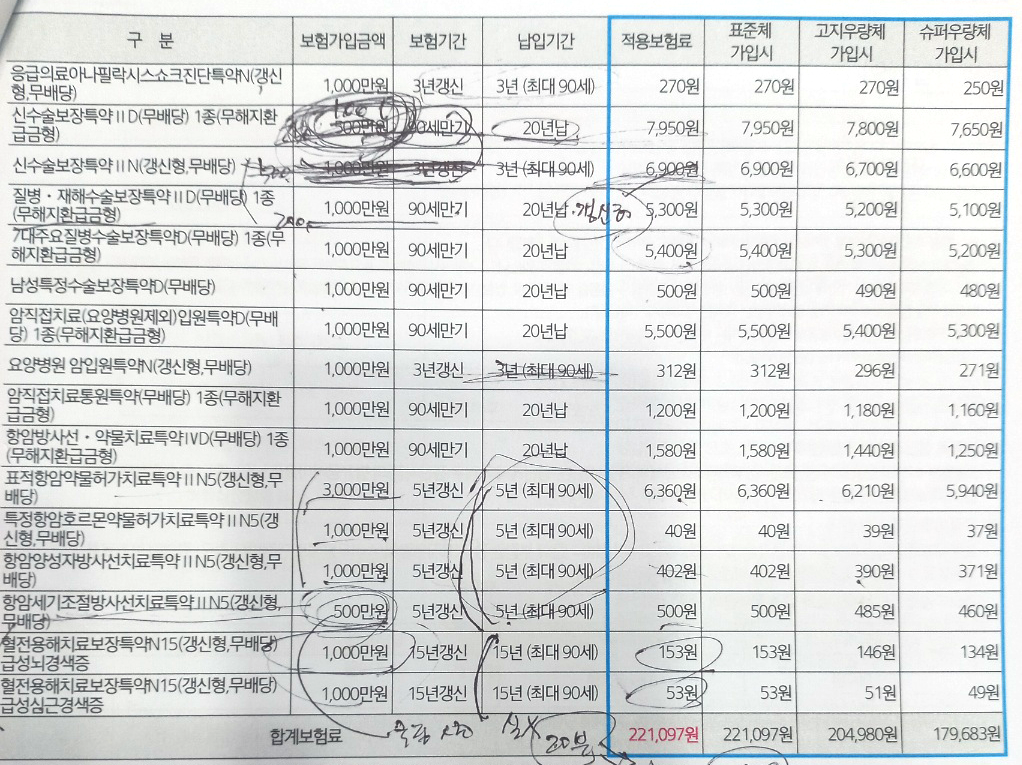 구 분 보험가입금액 보험기간 납입기간 적용보험료 표준체 가입시 고지우량체 가입시 슈퍼우량체 가입시
응급의료아나필락시스쇼크진단특약N(갱신형,무배당) 1,000만원 3년갱신 3년 (최대 90세) 270원 270원 270원 250원
100
신수술보장특약ⅡD(무배당) 1종(무해지환급금형) 500만원 90세만기 20년납 7,950원 7,950원 7,800원 7,650원
신수술보장특약ⅡN(갱신형,무배당) 1,000만원 3년갱신 3년 (최대 90세) 6,900원 6,900원 6,700원 6,600원
질병·재해수술보장특약ⅡD(무배당) 1종(무해지환급금형) 1,000만원 90세만기 20년납 5,300원 5,300원 5,200원 5,100원
7대주요질병수술보장특약D(무배당) 1종(무해지환급금형) 1,000만원 90세만기 20년납 5,400원 5,400원 5,300원 5,200원
남성특정수술보장특약D(무배당) 1,000만원 90세만기 20년납 500원 500원 490원 480원
암직접치료(요양병원제외)입원특약D(무배당) 1종(무해지환급금형) 1,000만원 90세만기 20년납 5,500원 5,500원 5,400원 5,300원
요양병원 암입원특약N(갱신형,무배당) 1,000만원 3년갱신 3년 (최대 90세) 312원 312원 296원 271원
암직접치료통원특약(무배당) 1종(무해지환급금형) 1,000만원 90세만기 20년납 1,200원 1,200원 1,180원 1,160원
항암방사선·약물치료특약ⅣD(무배당) 1종(무해지환급금형) 1,000만원 90세만기 20년납 1,580원 1,580원 1,440원 1,250원
표적항암약물허가치료특약ⅡN5(갱신형,무배당) 3,000만원 5년갱신 5년 (최대 90세) 6,360원 6,360원 6,210원 5,940원
특정항암호르몬약물허가치료특약ⅡN5(갱신형,무배당) 1,000만원 5년갱신 5년 (최대 90세) 40원 40원 39원 37원
항암양성자방사선치료특약ⅡN5(갱신형,무배당) 1,000만원 5년갱신 5년 (최대 90세) 402원 402원 390원 371원
항암세기조절방사선치료특약ⅡN5(갱신형,무배당) 500만원 5년갱신 5년 (최대 90세) 500원 500원 485원 460원
혈전용해치료보장특약N15(갱신형,무배당) 급성뇌경색증 1,000만원 15년갱신 15년 (최대 90세) 153원 153원 146원 134원
혈전용해치료보장특약N15(갱신형,무배당) 급성심근경색증 1,000만원 15년갱신 15년 (최대 90세) 53원 53원 51원 49원
합계보험료 221,097원 221,097원 204,980원 179,683원